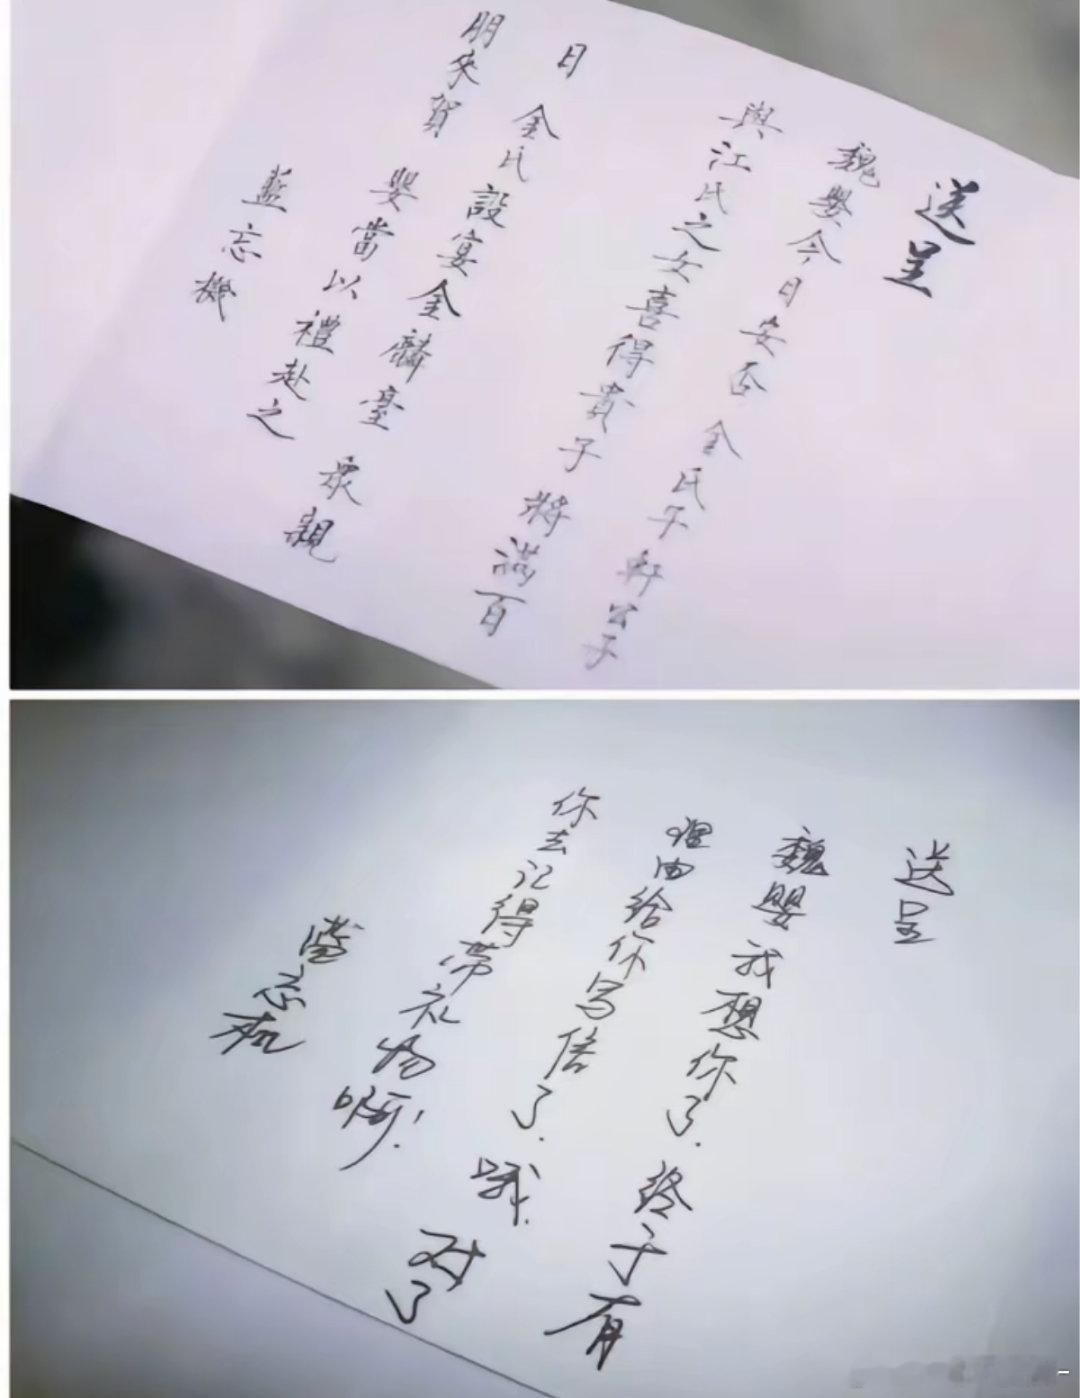 送呈
魏嬰今日安否 金氏子軒公子
與江氏之女喜得貴子 將滿百
日 金氏設宴金麟臺 眾親
朋來賀 嬰當以禮赴之
藍忘機
送呈
魏婴我想你了.终于有
理由给你写信了.哦.对了
你去记得带礼物啊!
蓝忘机